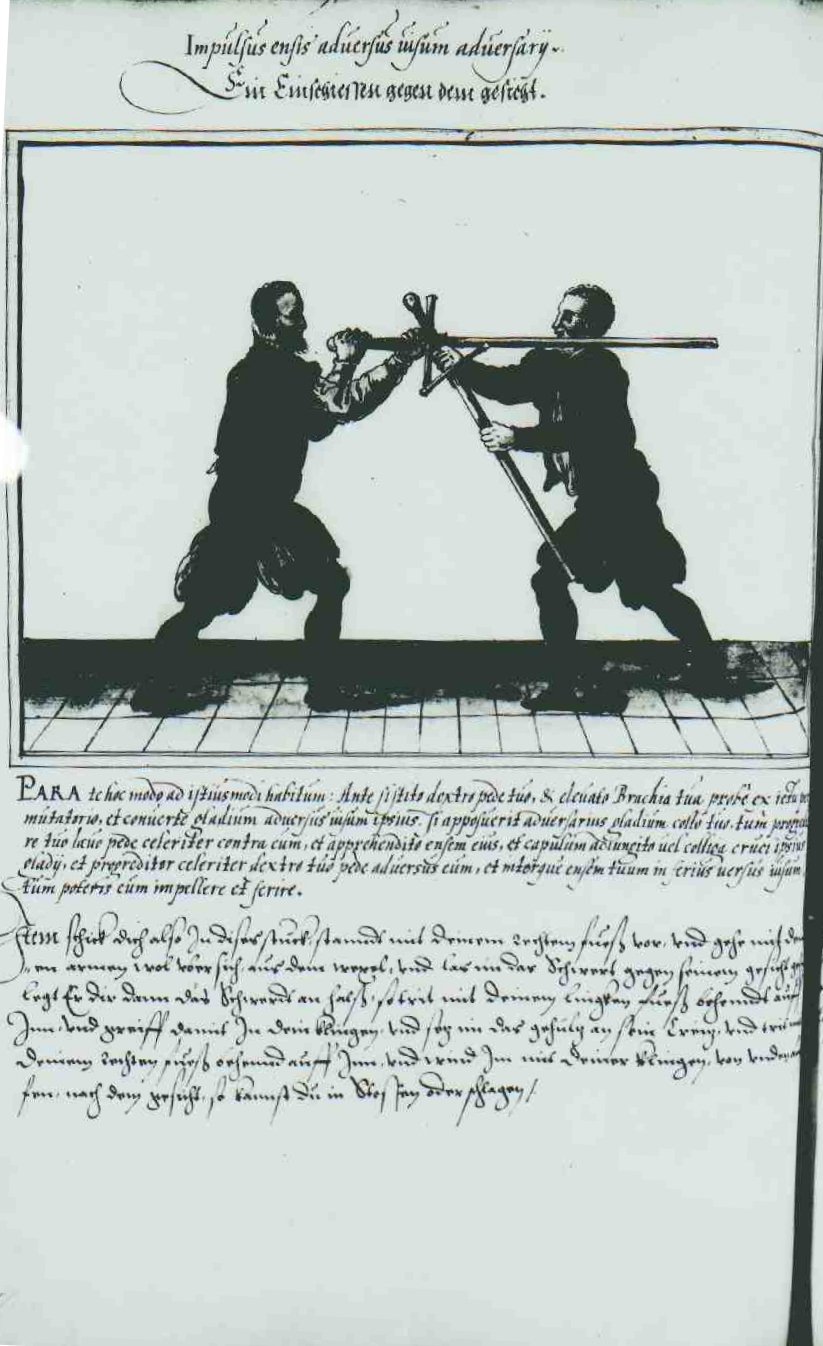 Impulsus ensis adversus visum adversarij.
Ein Einschiessen gegen dem gesicht.
PARA te hoc modo ad istiusmodi habitum: Ante sistito dextro pede tuo, & elevato Brachia tua probe ex ictu
mutatorio, et converte gladium adversus visum ipsius. si apposuerit adversarius gladium collo tuo, tum
re tuo laevo pede celeriter contra eum, et apprehendito ensem eius, et capulum adiungito vel colliga cruci ipsius
gladij, et progreditor celeriter dextro tuo pede adversus eum, et intorque ensem tuum inferius versus visum,
tum poteris eum impellere et ferire.
Item schick dich also In dises stuck, stannd mit deinem rechtem fuesß vor, vnd gehe mit
en armen wol vber sich, aus dem wexel, vnd las im das Schwert gegen seinem gesicht
legt Er dir dann das Schwerdt an halsß, so trit mit deinem lingken fuesß behendt auff
Inn, vnd greiff damit In dein klingen, vnd setz im das gehultz an sein Creitz, vnd trit
deinem rechten fuesß behennd auff Inn, vnd wind Im mit deiner klingen, von vnden
fen, nach dem gesicht, so kannst du in Stossen oder schlagen